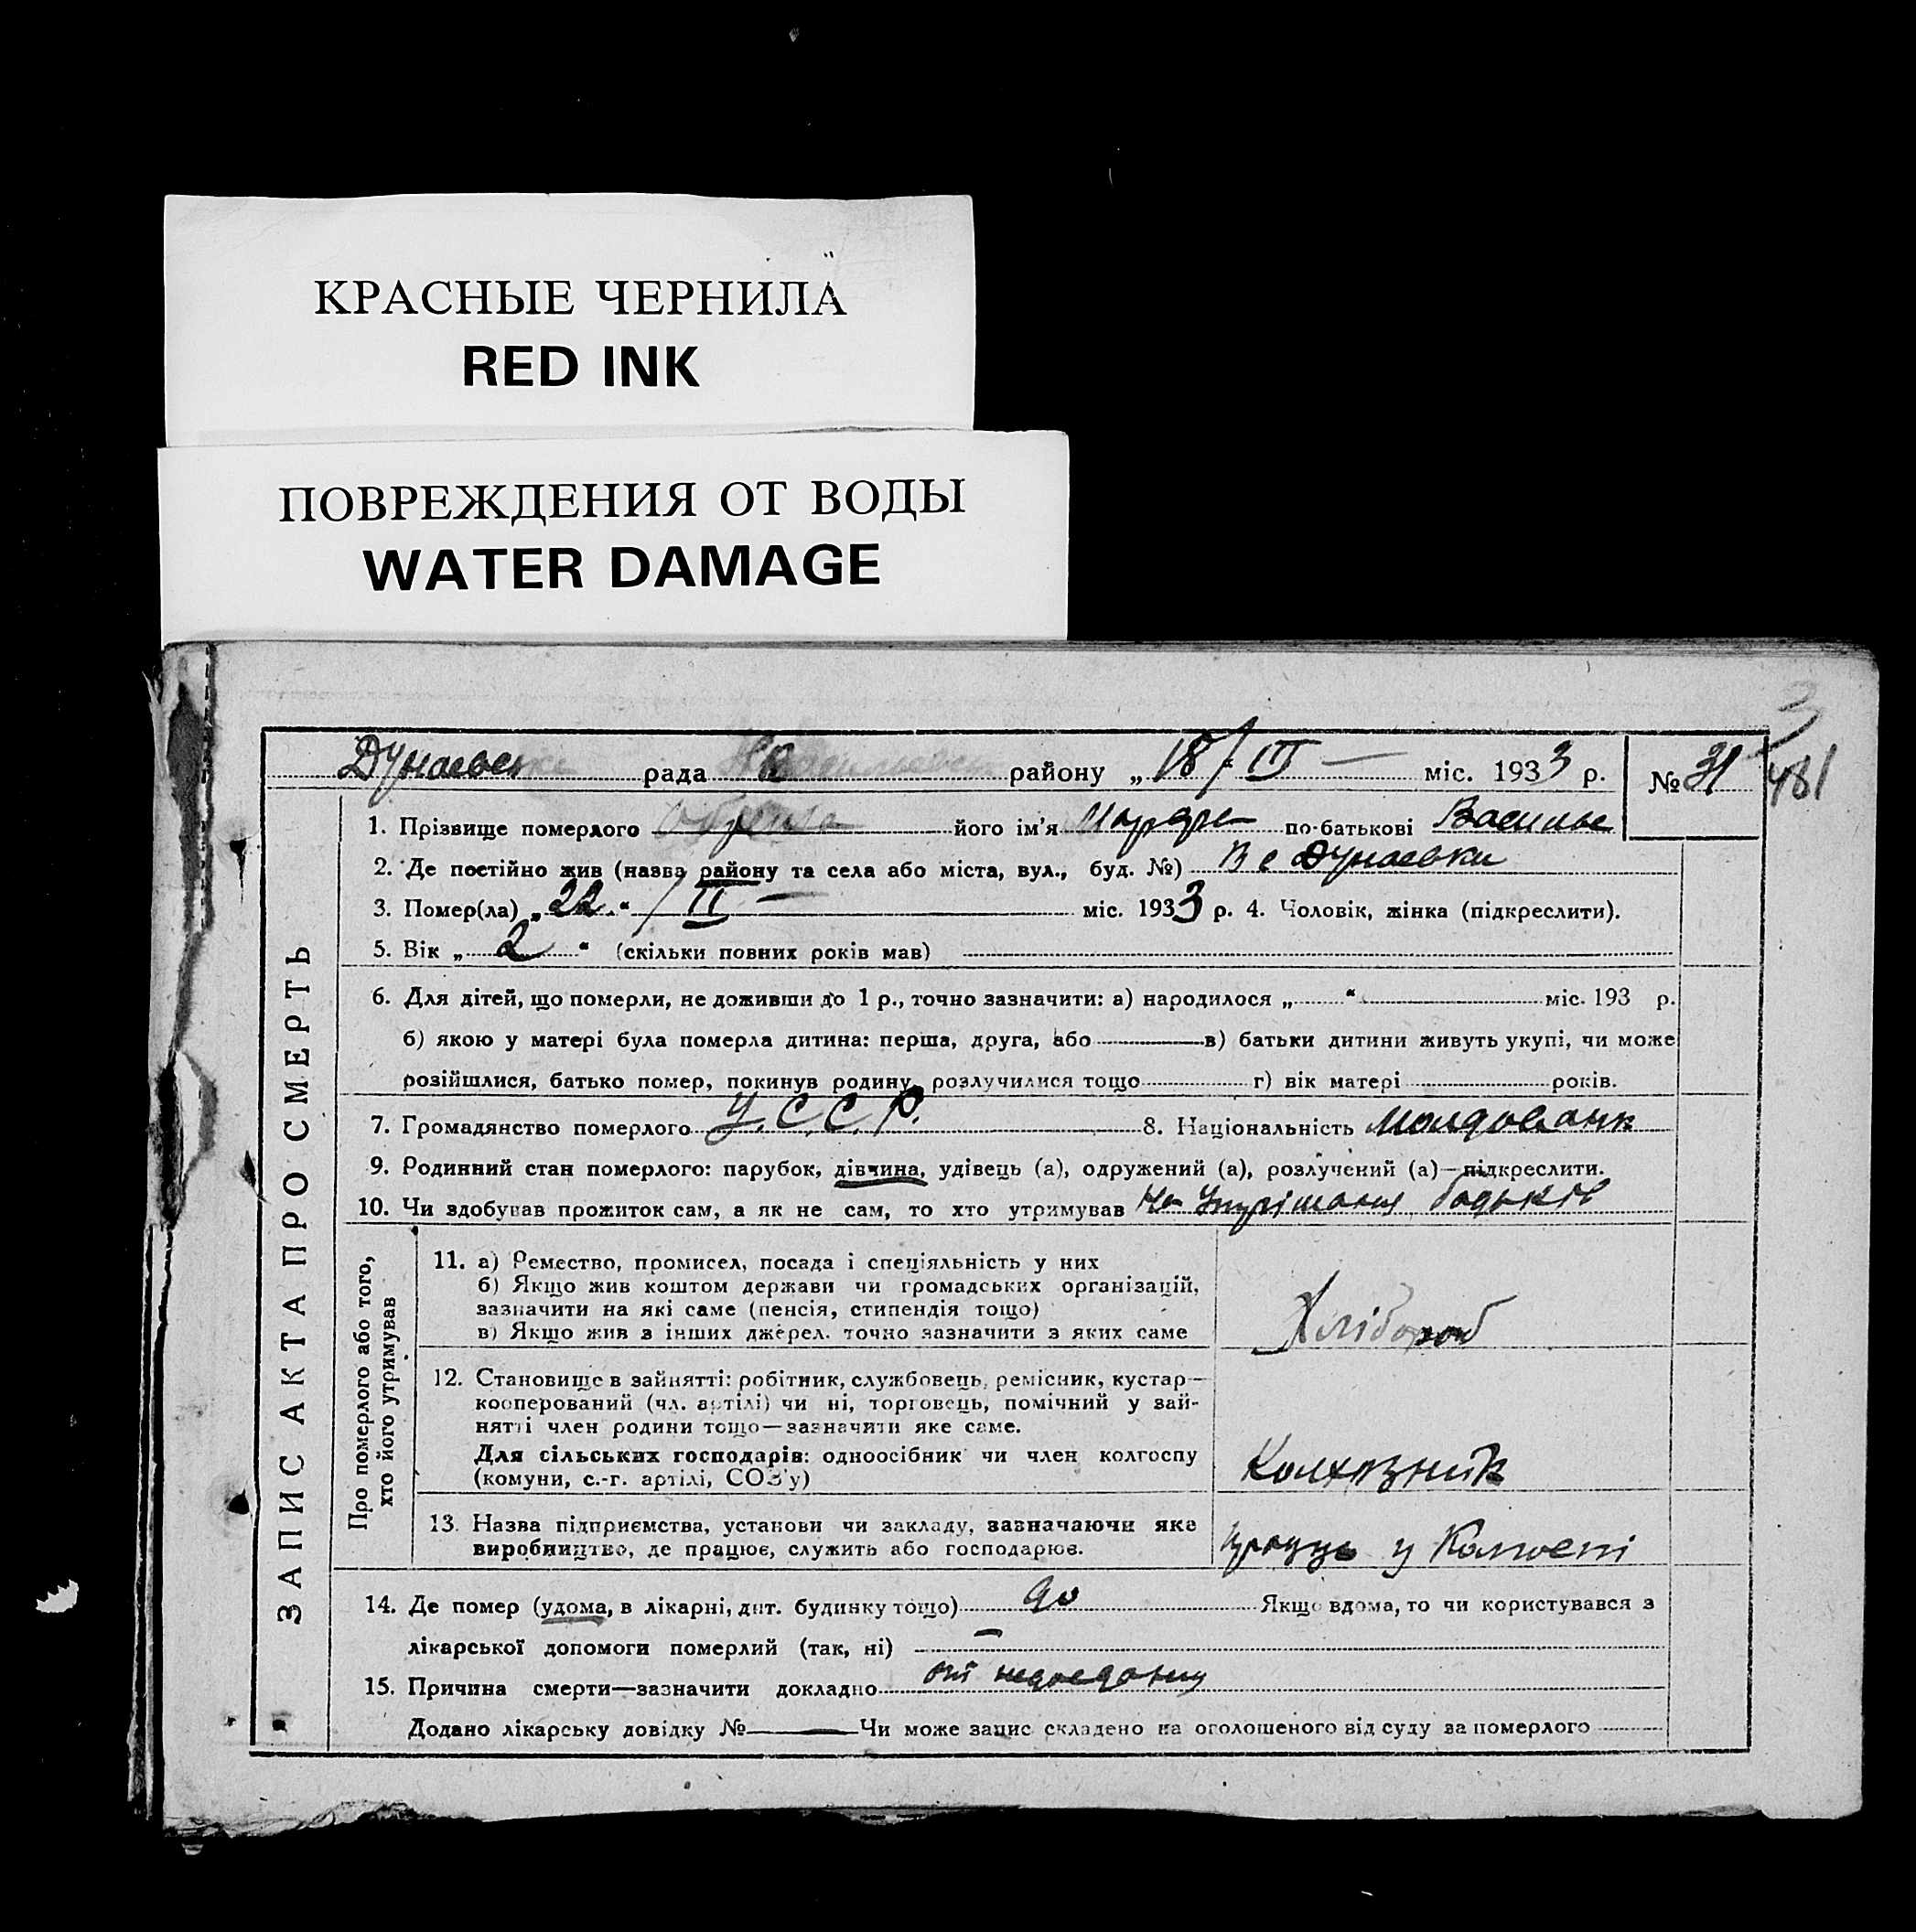 КРАСНЫЕ ЧЕРНИЛА
RED INK
ПОВРЕЖДЕНИЯ ОТ ВОДЫ
WATER DAMAGE
рада району „ 18/III — міс. 1933 р. № 31
481
1. Прізвище померлого його ім'я по-батькові
2. Де постійно жив (назва району та села або міста, вул., буд. №) В с Дунаевки
3. Помер(ла) „ 22 “ / II — міс. 1933 р. 4. Чоловік, жінка (підкреслити).
5. Вік „ 2 “ (скільки повних років мав)
6. Для дітей, що померли, не доживши до 1 р., точно зазначити: а) народилося „ “ міс. 193 р.
б) якою у матері була померла дитина: перша, друга, або в) батьки дитини живуть укупі, чи може
розійшлися, батько помер, покинув родину, розлучилися тощо г) вік матері років.
7. Громадянство померлого У. С. С. Р. 8. Національність
9. Родинний стан померлого: парубок, дівчина, удівець (а), одружений (а), розлучений (а)—підкреслити.
10. Чи здобував прожиток сам, а як не сам, то хто утримував На батьків
ЗАПИС АКТА ПРО СМЕРТЬ
Про померлого або того,
хто його утримував
11. а) Ремество, промисел, посада і спеціяльність у них
б) Якщо жив коштом держави чи громадських організацій,
зазначити на які саме (пенсія, стипендія тощо)
в) Якщо жив з інших джерел. точно зазначити з яких саме
Хлібороб
12. Становище в зайнятті: робітник, службовець, ремісник, кустар—
кооперований (чл. артілі) чи ні, торговець, помічний у зай-
нятті член родини тощо—зазначити яке саме.
Для сільських господарів: одноосібник чи член колгоспу
(комуни, с.-г. артілі, СОЗ'у)
Колхозник
13. Назва підприємства, установи чи закладу, зазначаючи яке
виробництво, де працює, служить або господарює.
у
14. Де помер (удома, в лікарні, дит. будинку тощо) Якщо вдома, то чи користувався з
лікарської допомоги померлий (так, ні) —
15. Причина смерти—зазначити докладно от недоеданя
Додано лікарську довідку № — Чи може запис складено на оголошеного від суду за померлого